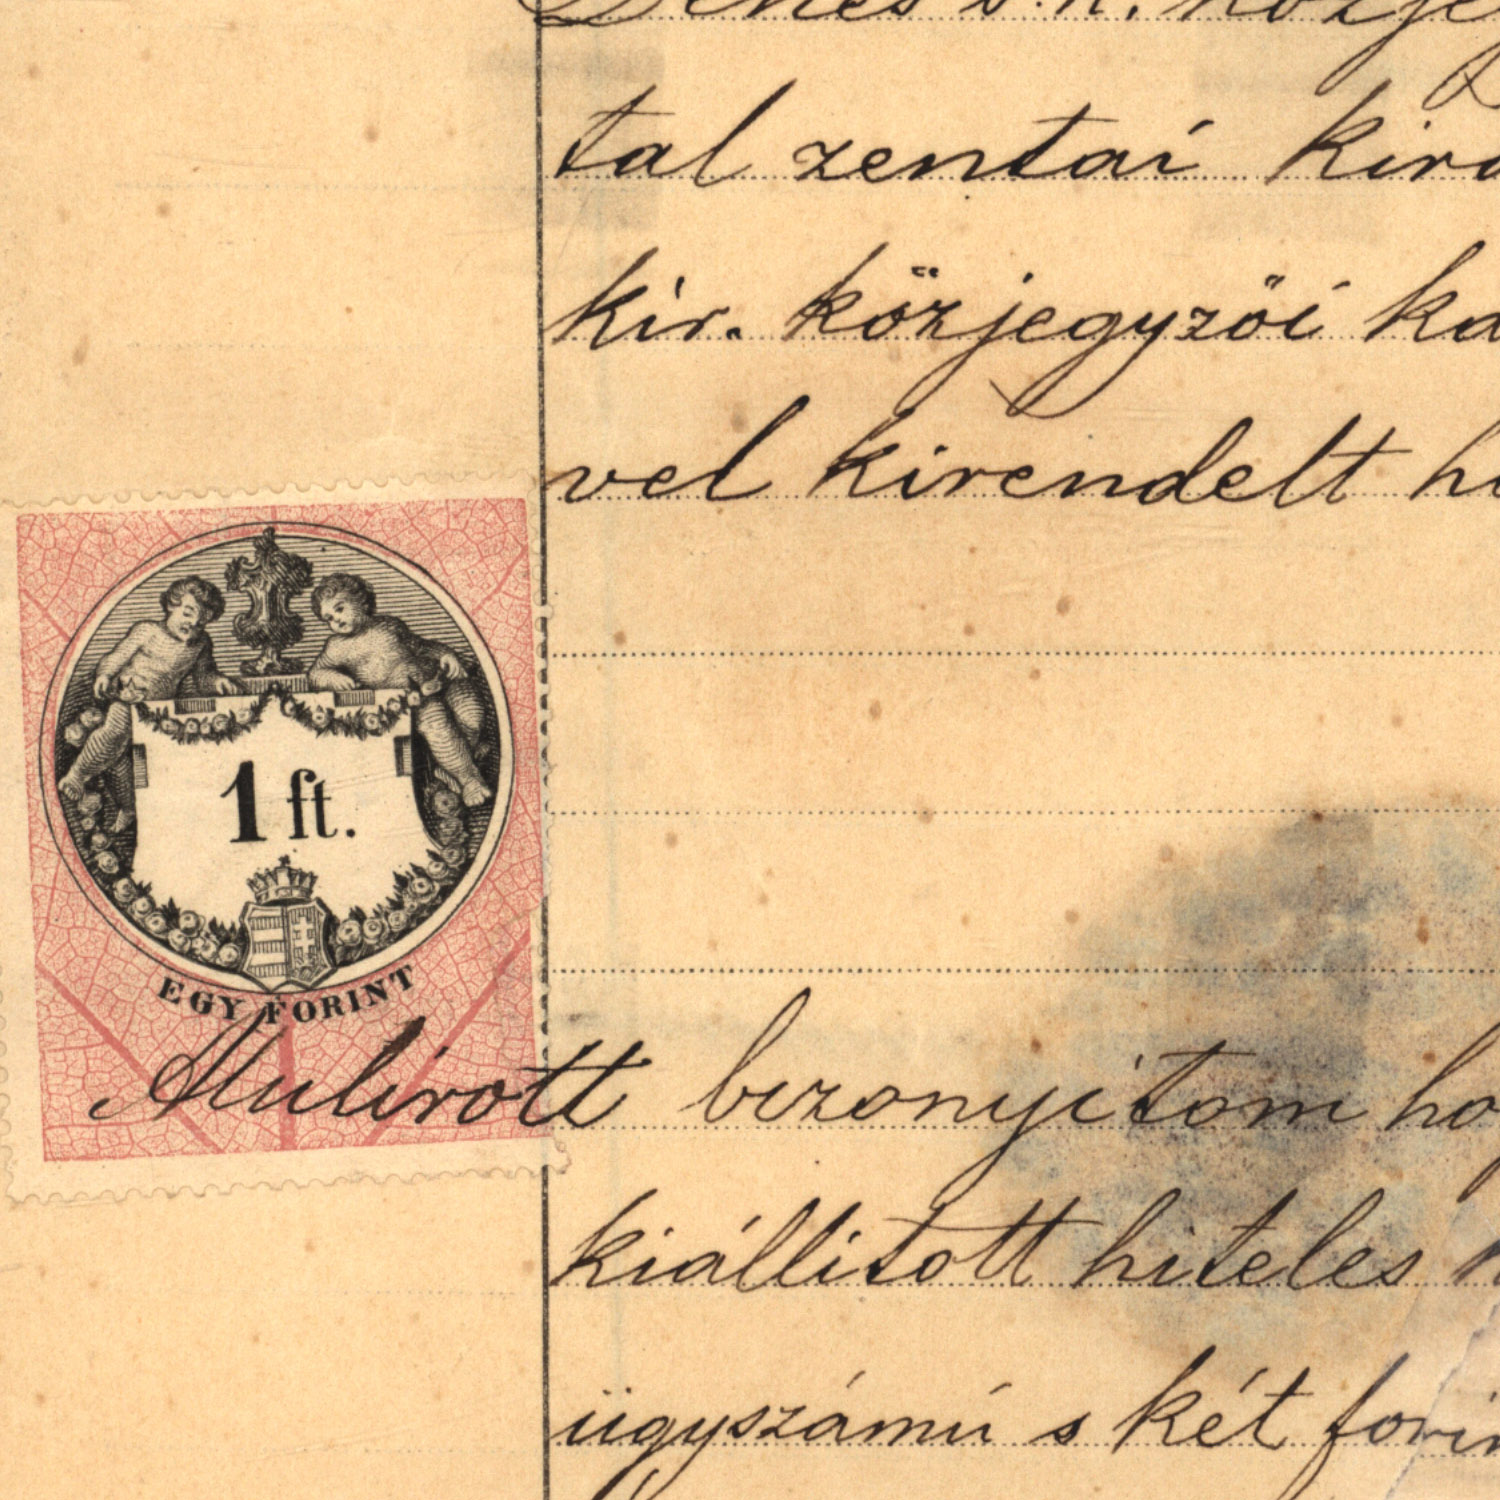 Dénes s. k. közje
tal zentai kirá
kir. közjegyzői ka
vel kirendelt he
1 ft.
EGY FORINT
Alulirott bizonyitom ho
kiállitott hiteles
ügyszámú s két forin